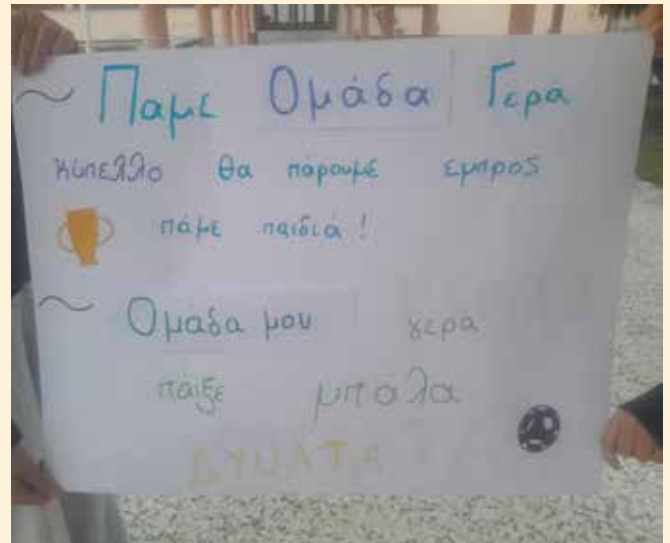 ~ Παμε Ομάδα Γερά
κύπελλο θα πάρουμε εμπρος
πάμε παιδιά !
~ Ομάδα μου γερά
παίξε μπάλα
ΔΥΝΑΤΑ